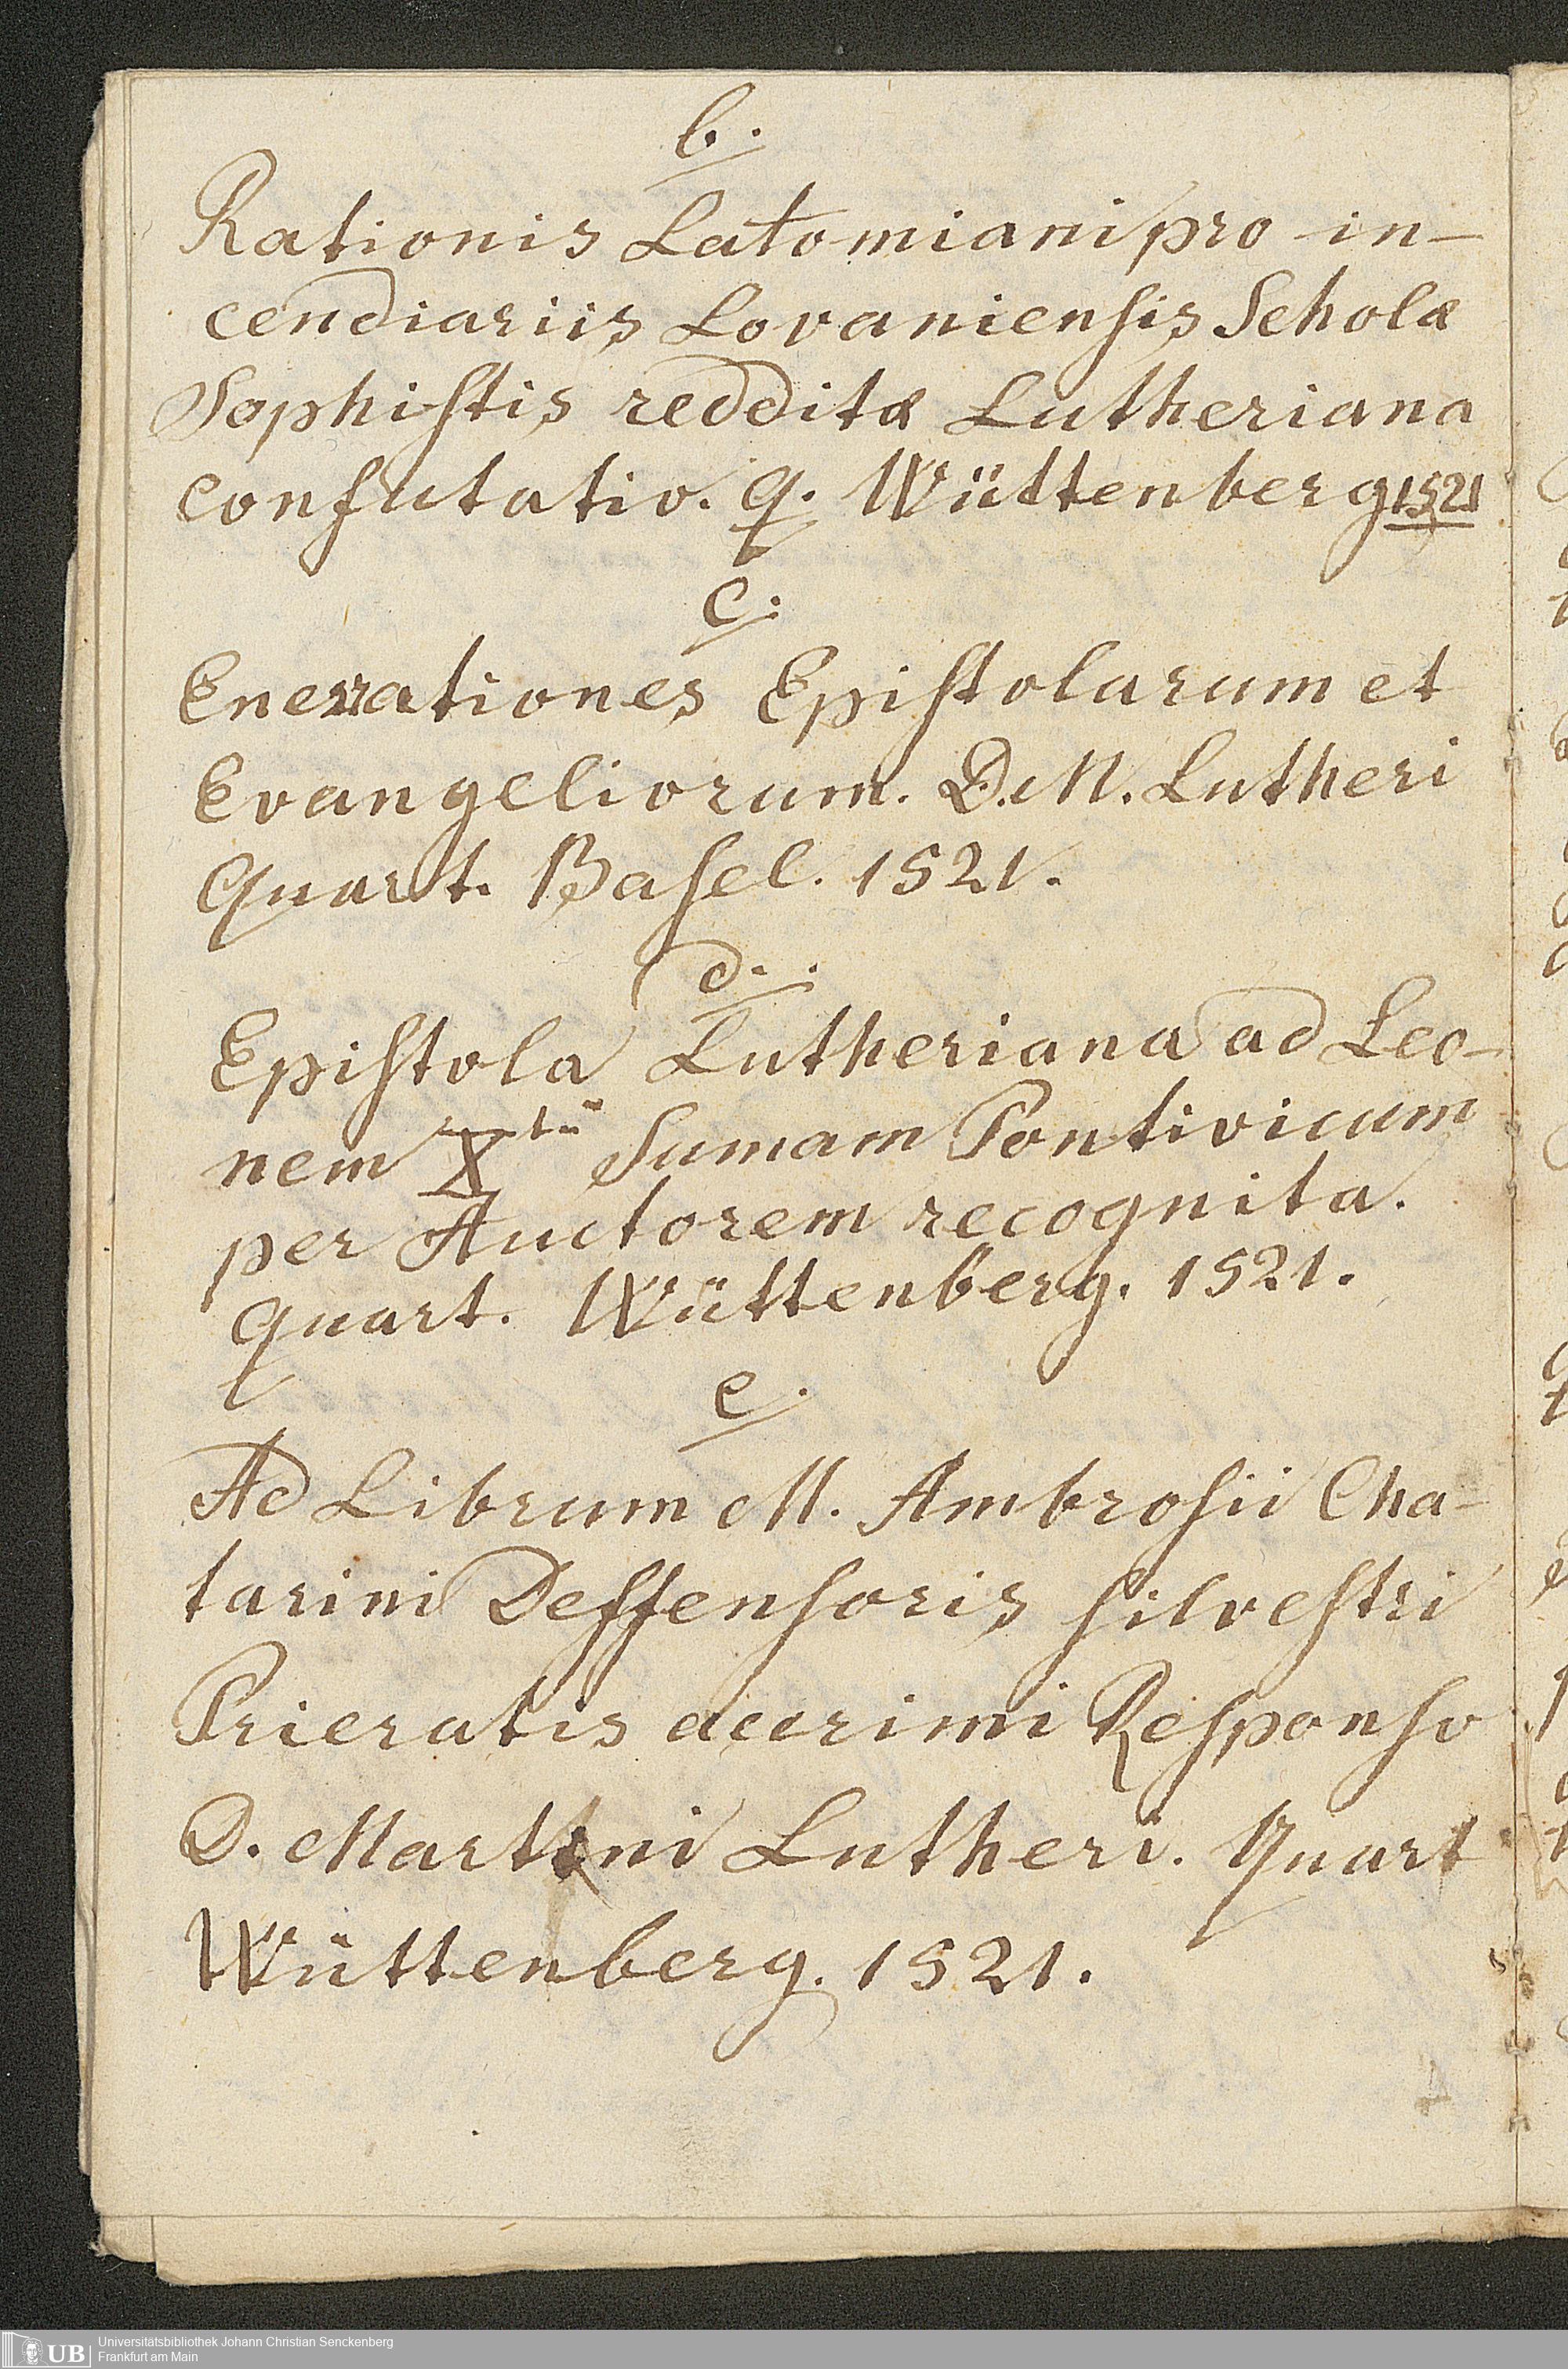 b.
Rationis Latomiani pro in-
cendiariis Lovaniensis Scholæ
Sophistis redditæ Lutheriana
Confutatio. q. Wüttenberg 1521
c.
Enerrationes Epistolarum et
Evangeliorum. D. M. Lutheri
Quart. Basel. 1521.
d.
Epistola Lutheriana ad Leo-
nem X Sumam Pontivicum
per Auctorem recognita.
quart. Wüttenberg. 1521.
e.
Ad Librum M. Ambrosii Cha-
tarini Deffensoris silvestri
Prieratis acerimi Responso
D. Martini Lutheri. Quart
Wüttenberg. 1521.
UB Universitätsbibliothek Johann Christian Senckenberg
Frankfurt am Main